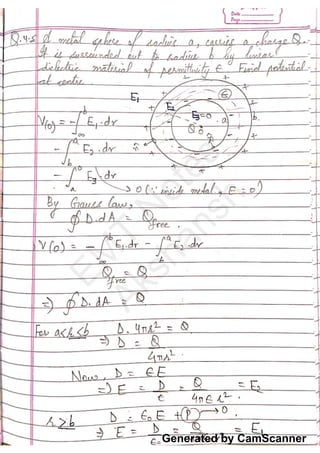 Date
Page
Q.4.5 A metal sphere of radius a, carries a charge Q.
It is surrounded out to radius b by linear
dielectric material of permittivity ε. Find potential
at centre
E₁
E₂
E₃=0
V(0) = -∫∞ᵇ E₁.dr
- ∫ᵇᵃ E₂.dr
- ∫ₐ⁰ E₃.dr
→ 0 (∵ inside metal, E = 0)
By Gauss law,
∮ D.dA = Qfree.
V(0) = -∫∞ᵇ E₁.dr - ∫ᵇᵃ E₂.dr
Qfree = Q
⇒ ∮ D.dA = Q
For a<r<b D. 4πr² = Q.
⇒ D = Q/4πr²
Now, D = εE
⇒ E = D/ε = Q/4πεr² = E₂
r>b D = ε₀E + P → 0.
⇒ E = D = Q = E₁
Generated by CamScanner